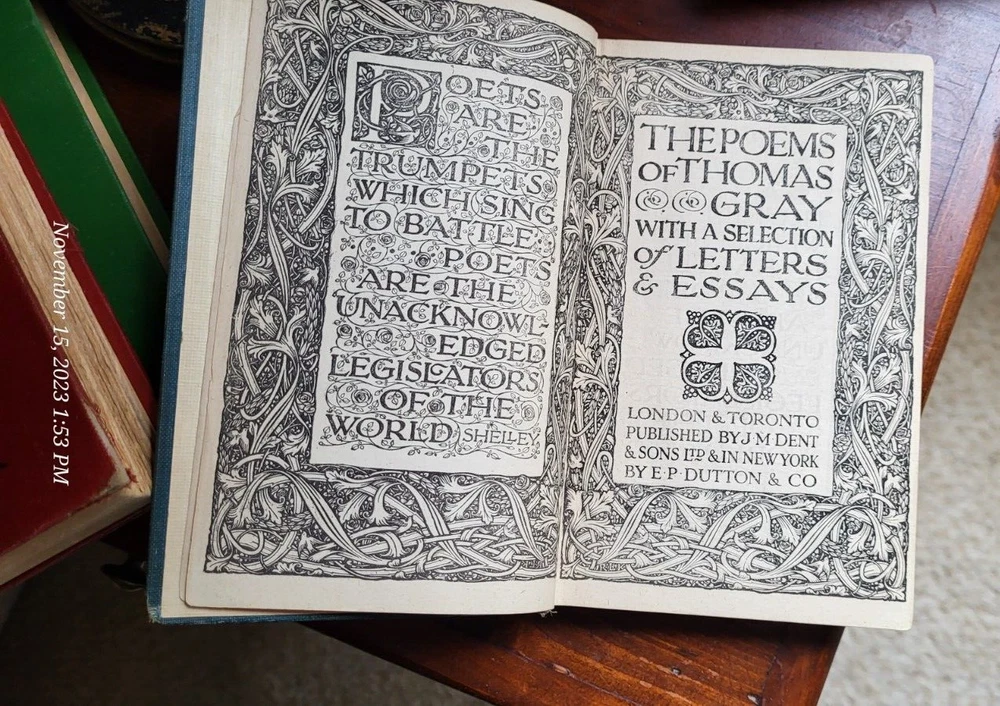 POETS
ARE
THE
TRUMPETS
WHICH SING
TO BATTLE
POETS
ARE THE
UNACKNOWL-
EDGED
LEGISLATORS
OF THE
WORLD SHELLEY
THE POEMS
OF THOMAS
GRAY
WITH A SELECTION
of LETTERS
& ESSAYS
LONDON & TORONTO
PUBLISHED BY J·M·DENT
& SONS LTD & IN NEW YORK
BY E·P·DUTTON & CO
November 15, 2023 1:53 PM